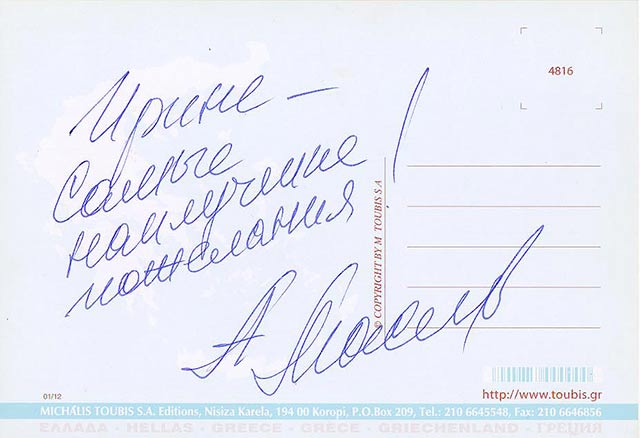 Ирине –
самые
наилучшие
пожелания!
4816
© COPYRIGHT BY M. TOUBIS S.A
01/12
http://www.toubis.gr
MICHÁLIS TOUBIS S.A. Editions, Nisiza Karela, 194 00 Koropi, P.O.Box 209, Tel.: 210 6645548, Fax: 210 6646856
ΕΛΛΑΔΑ - HELLAS - GREECE - GRÈCE - GRIECHENLAND - ГРЕЦИЯ